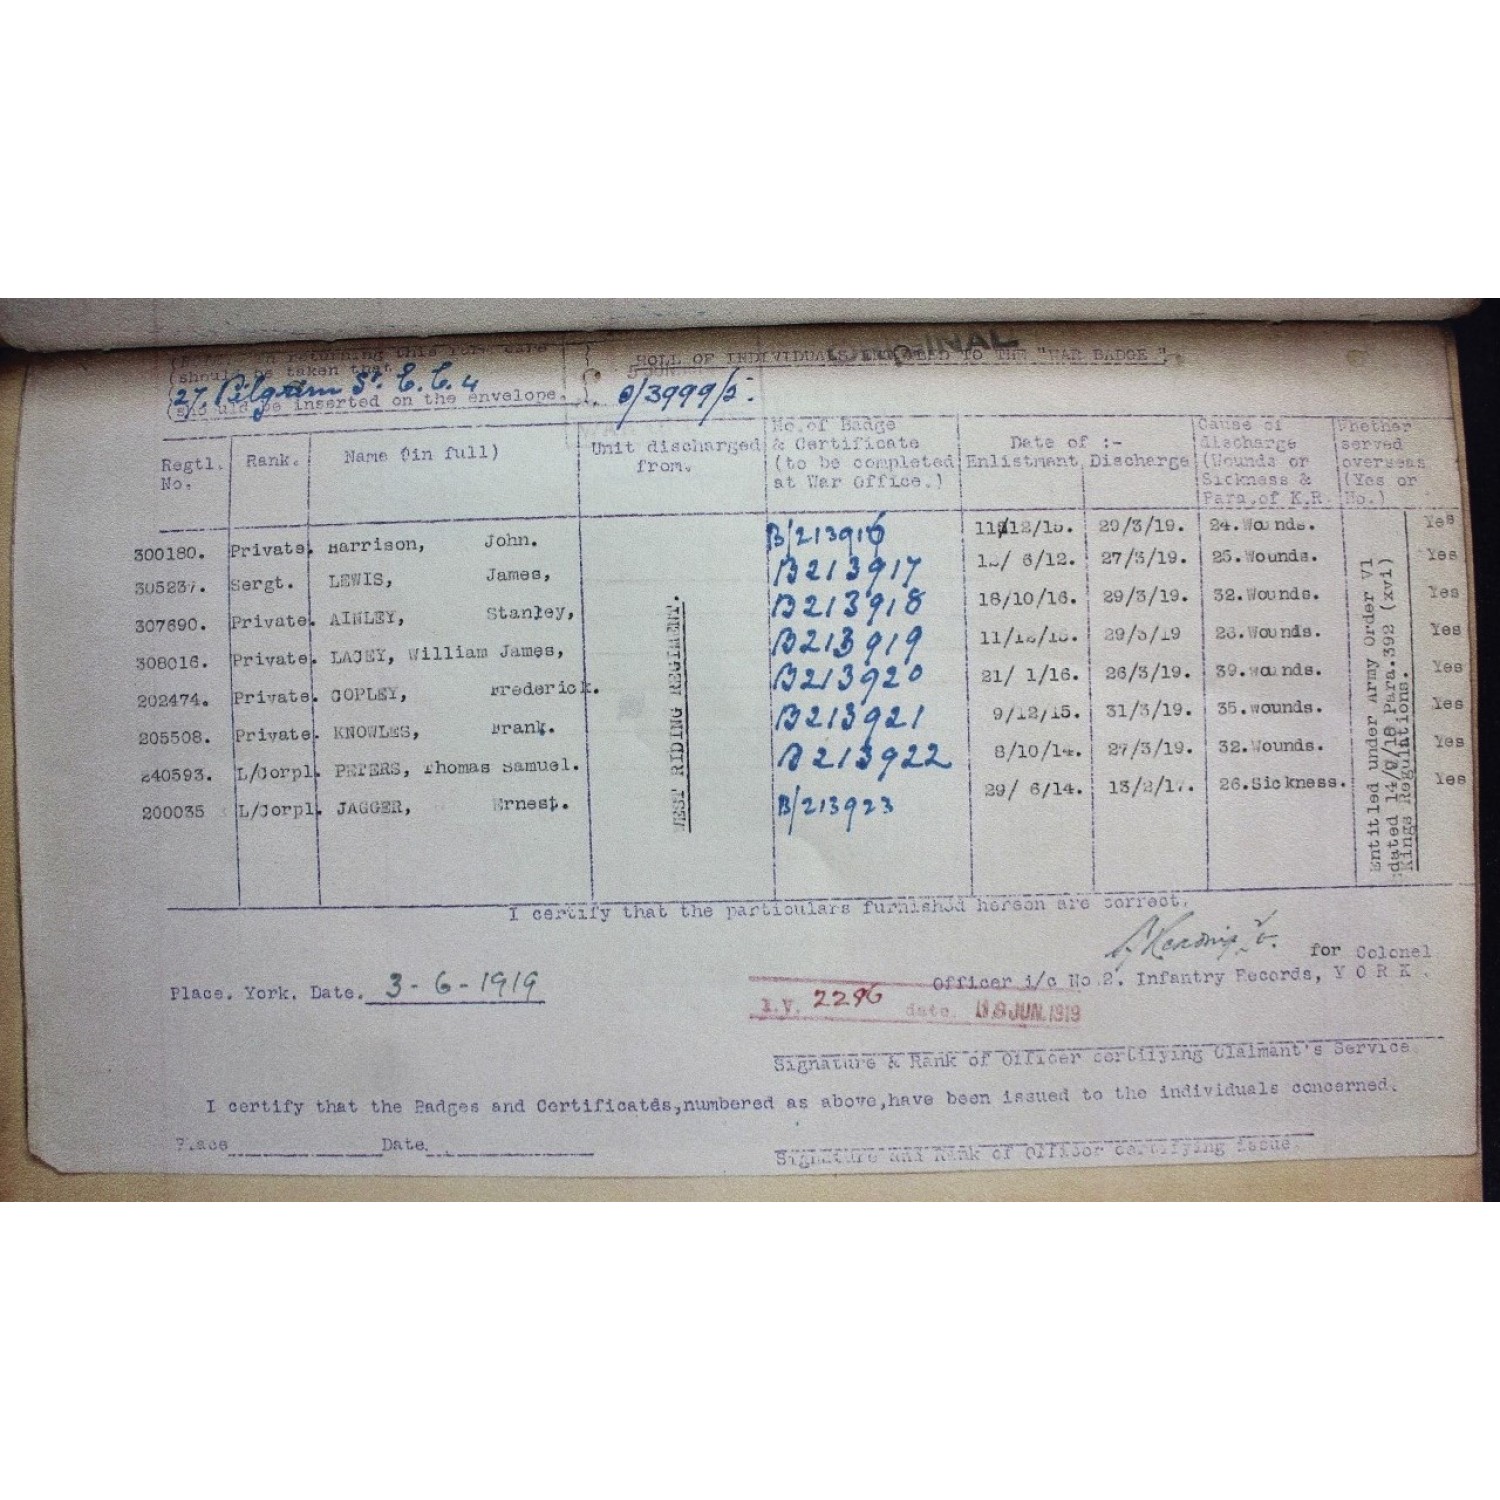 returning this form care
should be taken that
27, Pilgrim St. E.C.4
should be inserted on the envelope.
ORIGINAL
ROLL OF INDIVIDUALS ENTITLED TO THE "WAR BADGE".
0/3999/2.
Regtl. No. Rank. Name (in full) Unit discharged from. No. of Badge & Certificate (to be completed at War Office.) Date of :- Enlistment Discharge Cause of discharge (Wounds or Sickness & Para. of K.R. Whether served overseas (Yes or No.)
300180. Private. Harrison, John. B/213916 11/12/15. 29/3/19. 24. Wounds. Yes
305237. Sergt. LEWIS, James, B213917 6/12. 27/3/19. 25. Wounds. Yes
307690. Private. AINLEY, Stanley, B213918 16/10/16. 29/3/19. 32. Wounds. Yes
308016. Private. LACEY, William James, B213919 29/3/19 Wounds. Yes
202474. Private. COPLEY, Frederick. B213920 21/ 1/16. 26/3/19. 39. Wounds. Yes
205508. Private. KNOWLES, Frank. B213921 9/12/15. 31/3/19. 35. Wounds. Yes
240593. L/Corpl. PETERS, Thomas Samuel. B213922 8/10/14. 27/3/19. 32. Wounds. Yes
200035 L/Corpl. JAGGER, Ernest. B/213923 29/ 6/14. 13/2/17. 26. Sickness. Yes
WEST RIDING REGIMENT.
Entitled under Army Order VI
dated 14/9/18 Para.392 (xvi)
Kings Regulations.
I certify that the particulars furnished hereon are correct.
for Colonel
Place. York. Date. 3-6-1919
Officer i/c No.2. Infantry Records, Y O R K.
I.V. 2296 date. 18 JUN. 1919
Signature & Rank of Officer certifying Claimant's Service
I certify that the Badges and Certificates,numbered as above,have been issued to the individuals concerned.
Place Date.
Signature and Rank of Officer certifying issue.